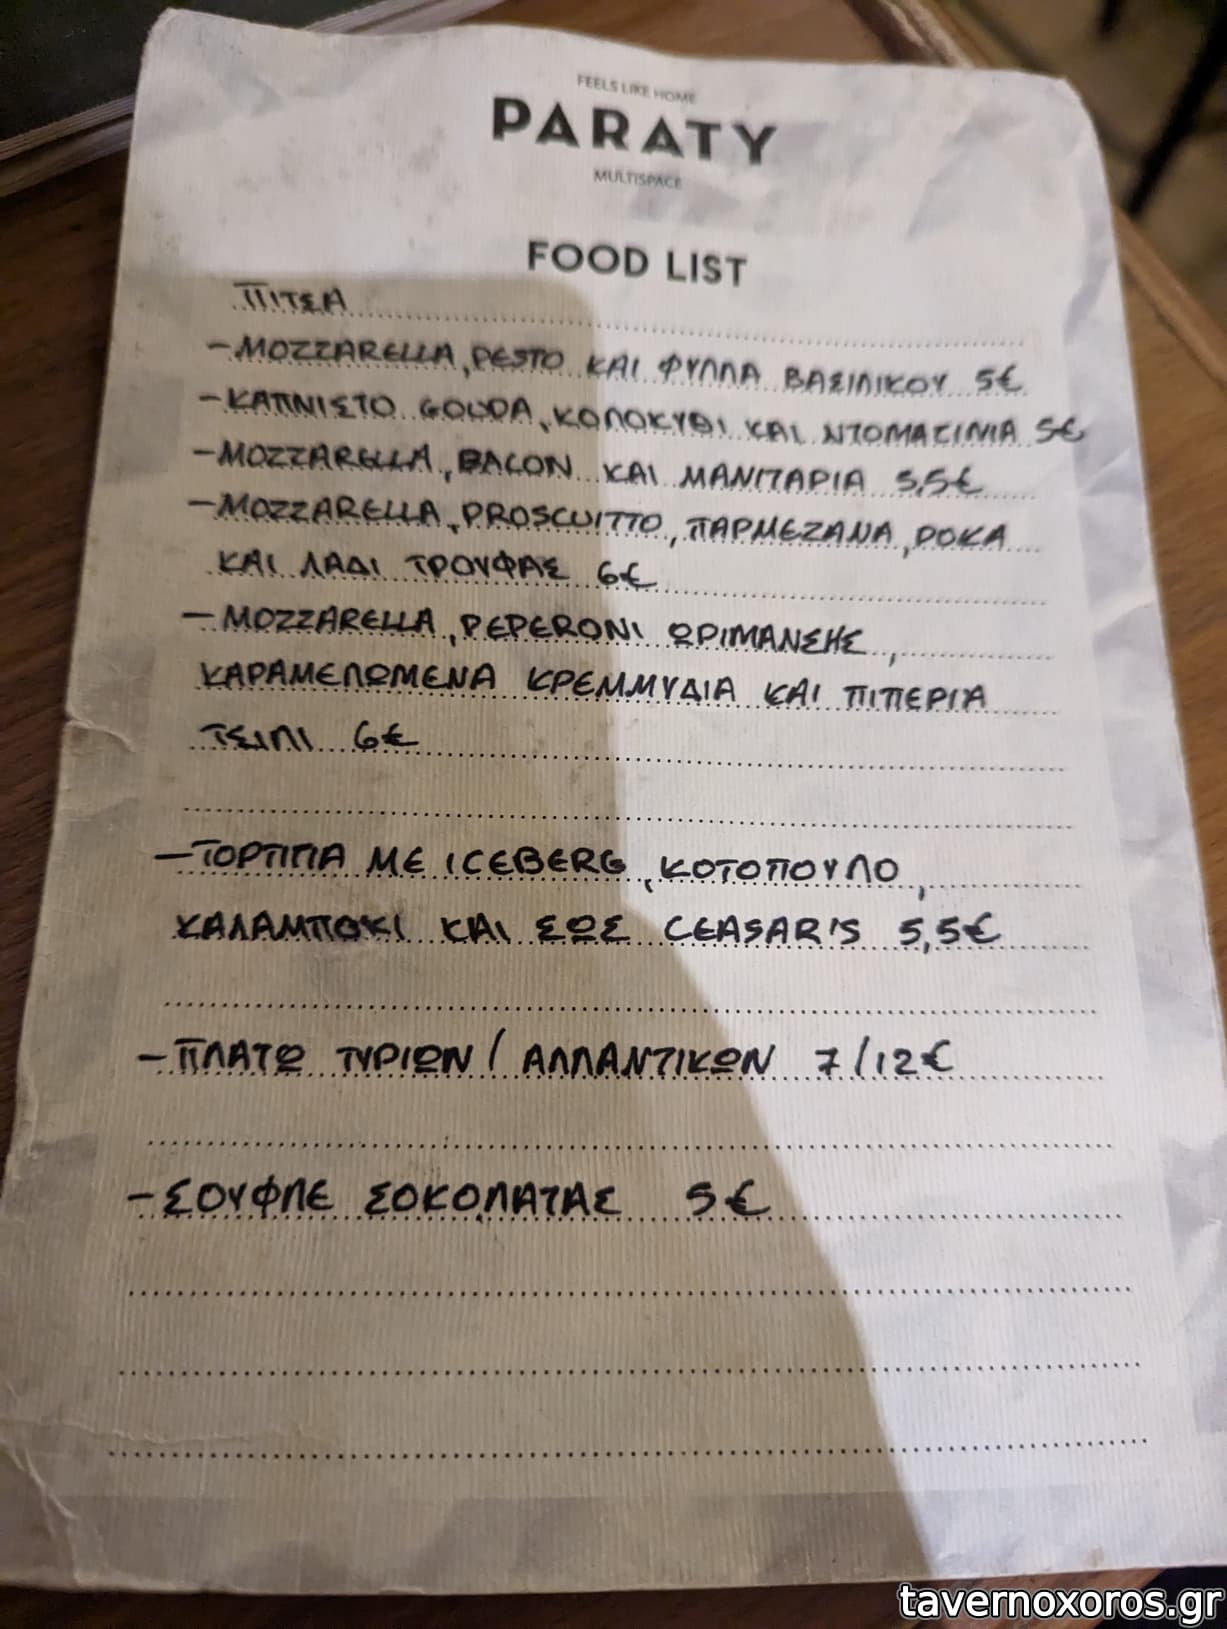 FEELS LIKE HOME
PARATY
MULTISPACE
FOOD LIST
ΠΙΤΣΑ
-MOZZARELLA, PESTO ΚΑΙ ΦΥΛΛΑ ΒΑΣΙΛΙΚΟΥ 5€
-ΚΑΠΝΙΣΤΟ GOUDA, ΚΟΛΟΚΥΘΙ ΚΑΙ ΝΤΟΜΑΤΙΝΙΑ 5€
-MOZZARELLA, BACON ΚΑΙ ΜΑΝΙΤΑΡΙΑ 5,5€
-MOZZARELLA, PROSCUITTO, ΠΑΡΜΕΖΑΝΑ, ΡΟΚΑ
ΚΑΙ ΛΑΔΙ ΤΡΟΥΦΑΣ 6€
-MOZZARELLA, PEPERONI ΩΡΙΜΑΝΣΗΣ,
ΚΑΡΑΜΕΛΩΜΕΝΑ ΚΡΕΜΜΥΔΙΑ ΚΑΙ ΠΙΠΕΡΙΑ
ΤΣΙΛΙ 6€
-ΤΟΡΤΙΓΙΑ ΜΕ ICEBERG, ΚΟΤΟΠΟΥΛΟ,
ΚΑΛΑΜΠΟΚΙ ΚΑΙ ΣΩΣ CEASAR'S 5,5€
-ΠΛΑΤΩ ΤΥΡΙΩΝ / ΑΛΛΑΝΤΙΚΩΝ 7/12€
-ΣΟΥΦΛΕ ΣΟΚΟΛΑΤΑΣ 5€
tavernoxoros.gr